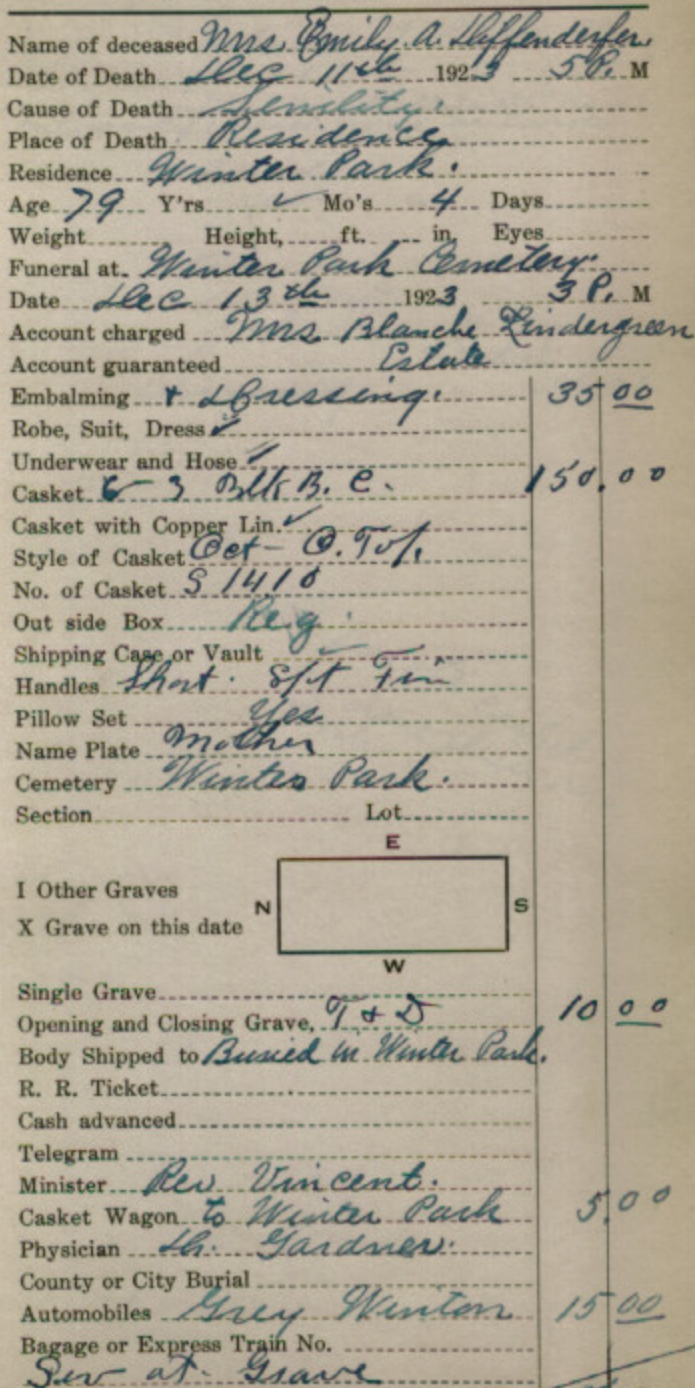 Name of deceased Mrs. Emily A. Diffenderfer
Date of Death Dec 11th 1923 5 P. M
Cause of Death Senility.
Place of Death Residence
Residence Winter Park.
Age 79 Y'rs ✓ Mo's 4 Days
Weight Height, ft. in. Eyes
Funeral at. Winter Park Cemetery.
Date Dec 13th 1923 3 P. M
Account charged Mrs. Blanche Lindergreen
Account guaranteed Estate
Embalming & Dressing. 35 00
Robe, Suit, Dress ✓
Underwear and Hose ✓
Casket 6-3 Blk B. C. 150.00
Casket with Copper Lin. ✓
Style of Casket Oct - O. Top.
No. of Casket S 1410
Out side Box Reg.
Shipping Case or Vault ✓
Handles Short.
Pillow Set Yes
Name Plate Mother
Cemetery Winter Park.
Section Lot
E
I Other Graves
N S
X Grave on this date
W
Single Grave
Opening and Closing Grave, T & D 10 00
Body Shipped to Buried in Winter Park.
R. R. Ticket
Cash advanced
Telegram
Minister Rev Vincent.
Casket Wagon to Winter Park 5.00
Physician Dr. Gardner.
County or City Burial
Automobiles Grey Winton 15 00
Bagage or Express Train No.
Ser at Grave